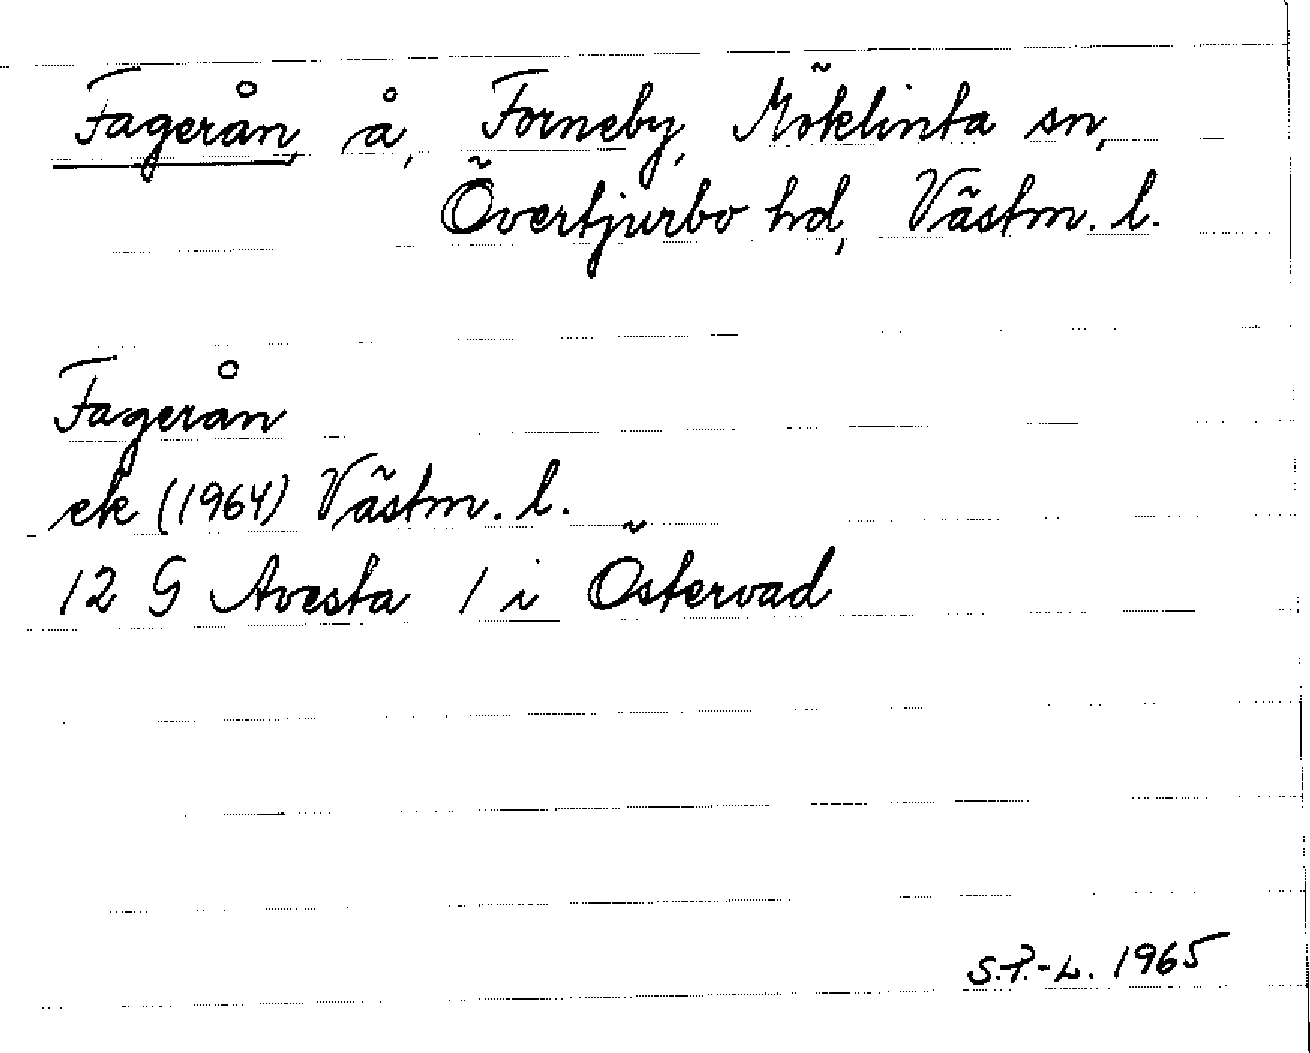 Fagerån, å, Forneby, Möklinta sn,
Övertjurbo hd, Västm. l.
Fagerån
ek (1964) Västm. l.
12 G Avesta 1 i Östervad
S.P.-L. 1965